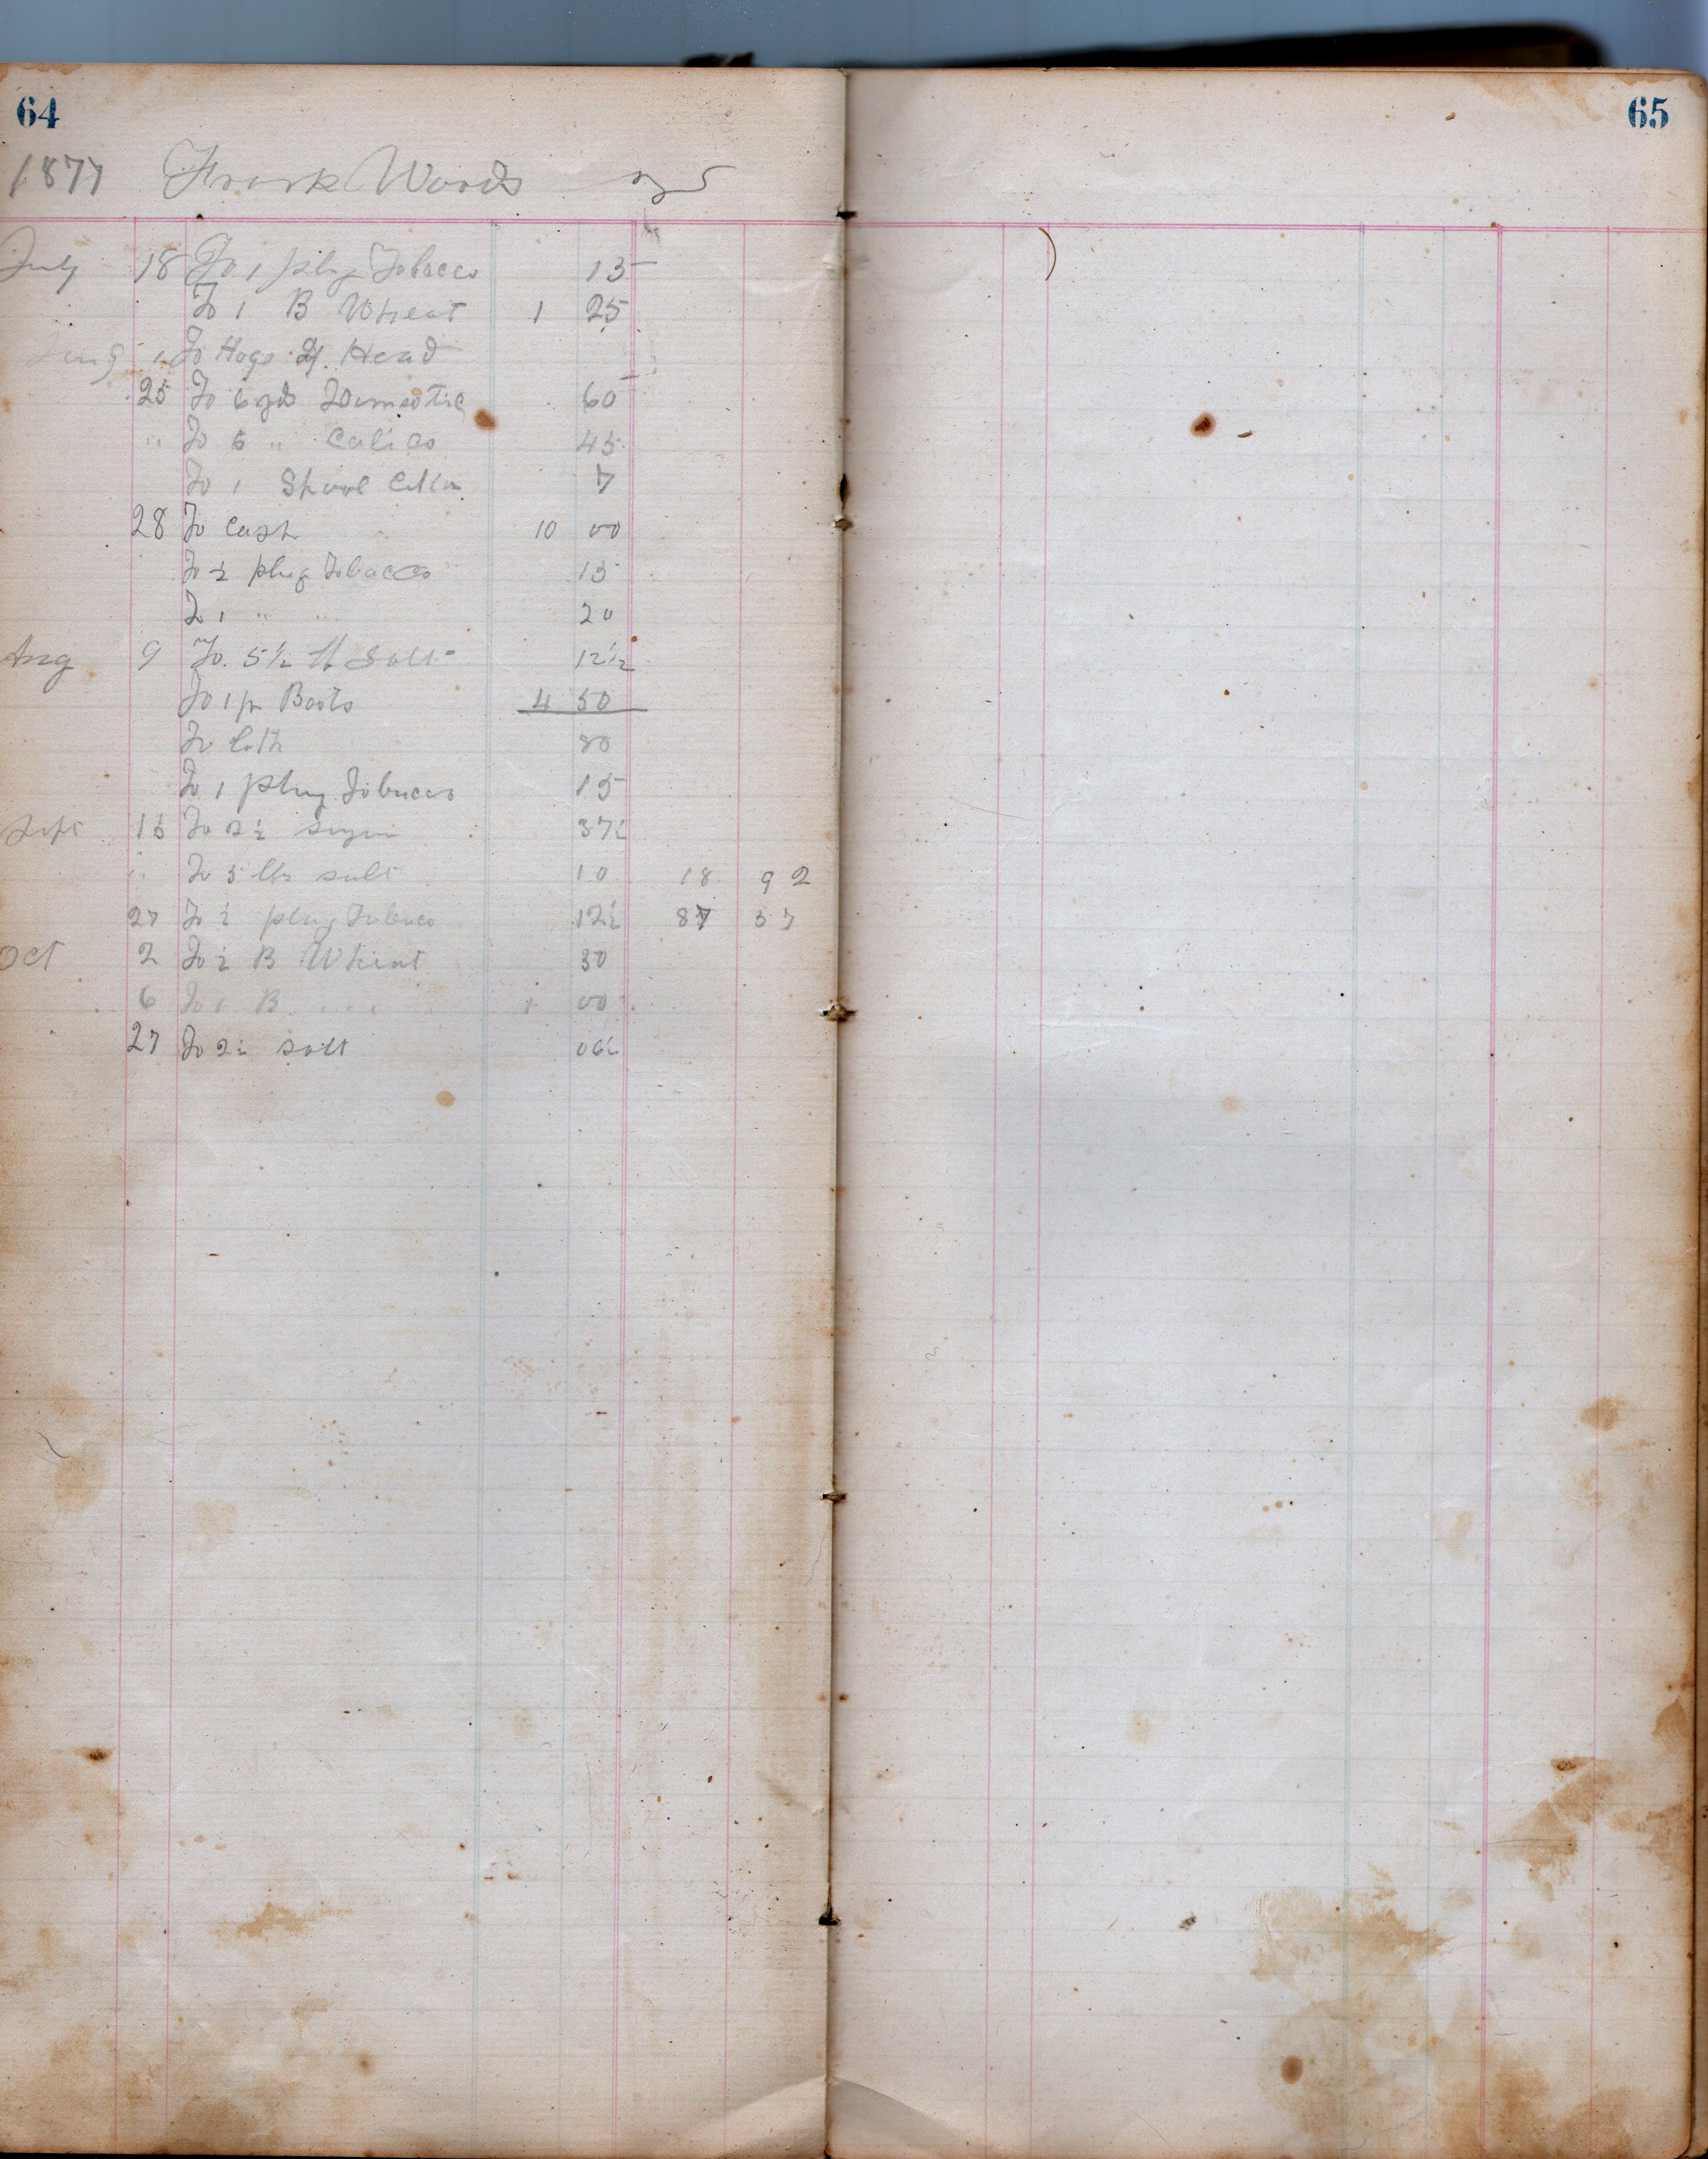 64
65
1877 Frank Woods
July 18 To 1 plug Tobacco 15
To 1 B Wheat 1 25
To Hogs Head
25 To 6 yds Domestic 60
" To 6 " Calico 45
To 1 Spool Cotton 7
28 To Cash 10 00
To ½ plug Tobacco 15
To 1 " " 20
Aug 9 To 5½ lb Salt 12½
To 1 pr Boots 4 50
To 80
To 1 plug Tobacco 15
Sept 15 To 2½ 37½
" To 5 lbs salt 10 18 92
27 To ½ plug Tobaco 12½ 87 37
Oct 2 To ½ B Wheat 30
6 To 1 B " " 1 00
27 To 2½ salt 06½